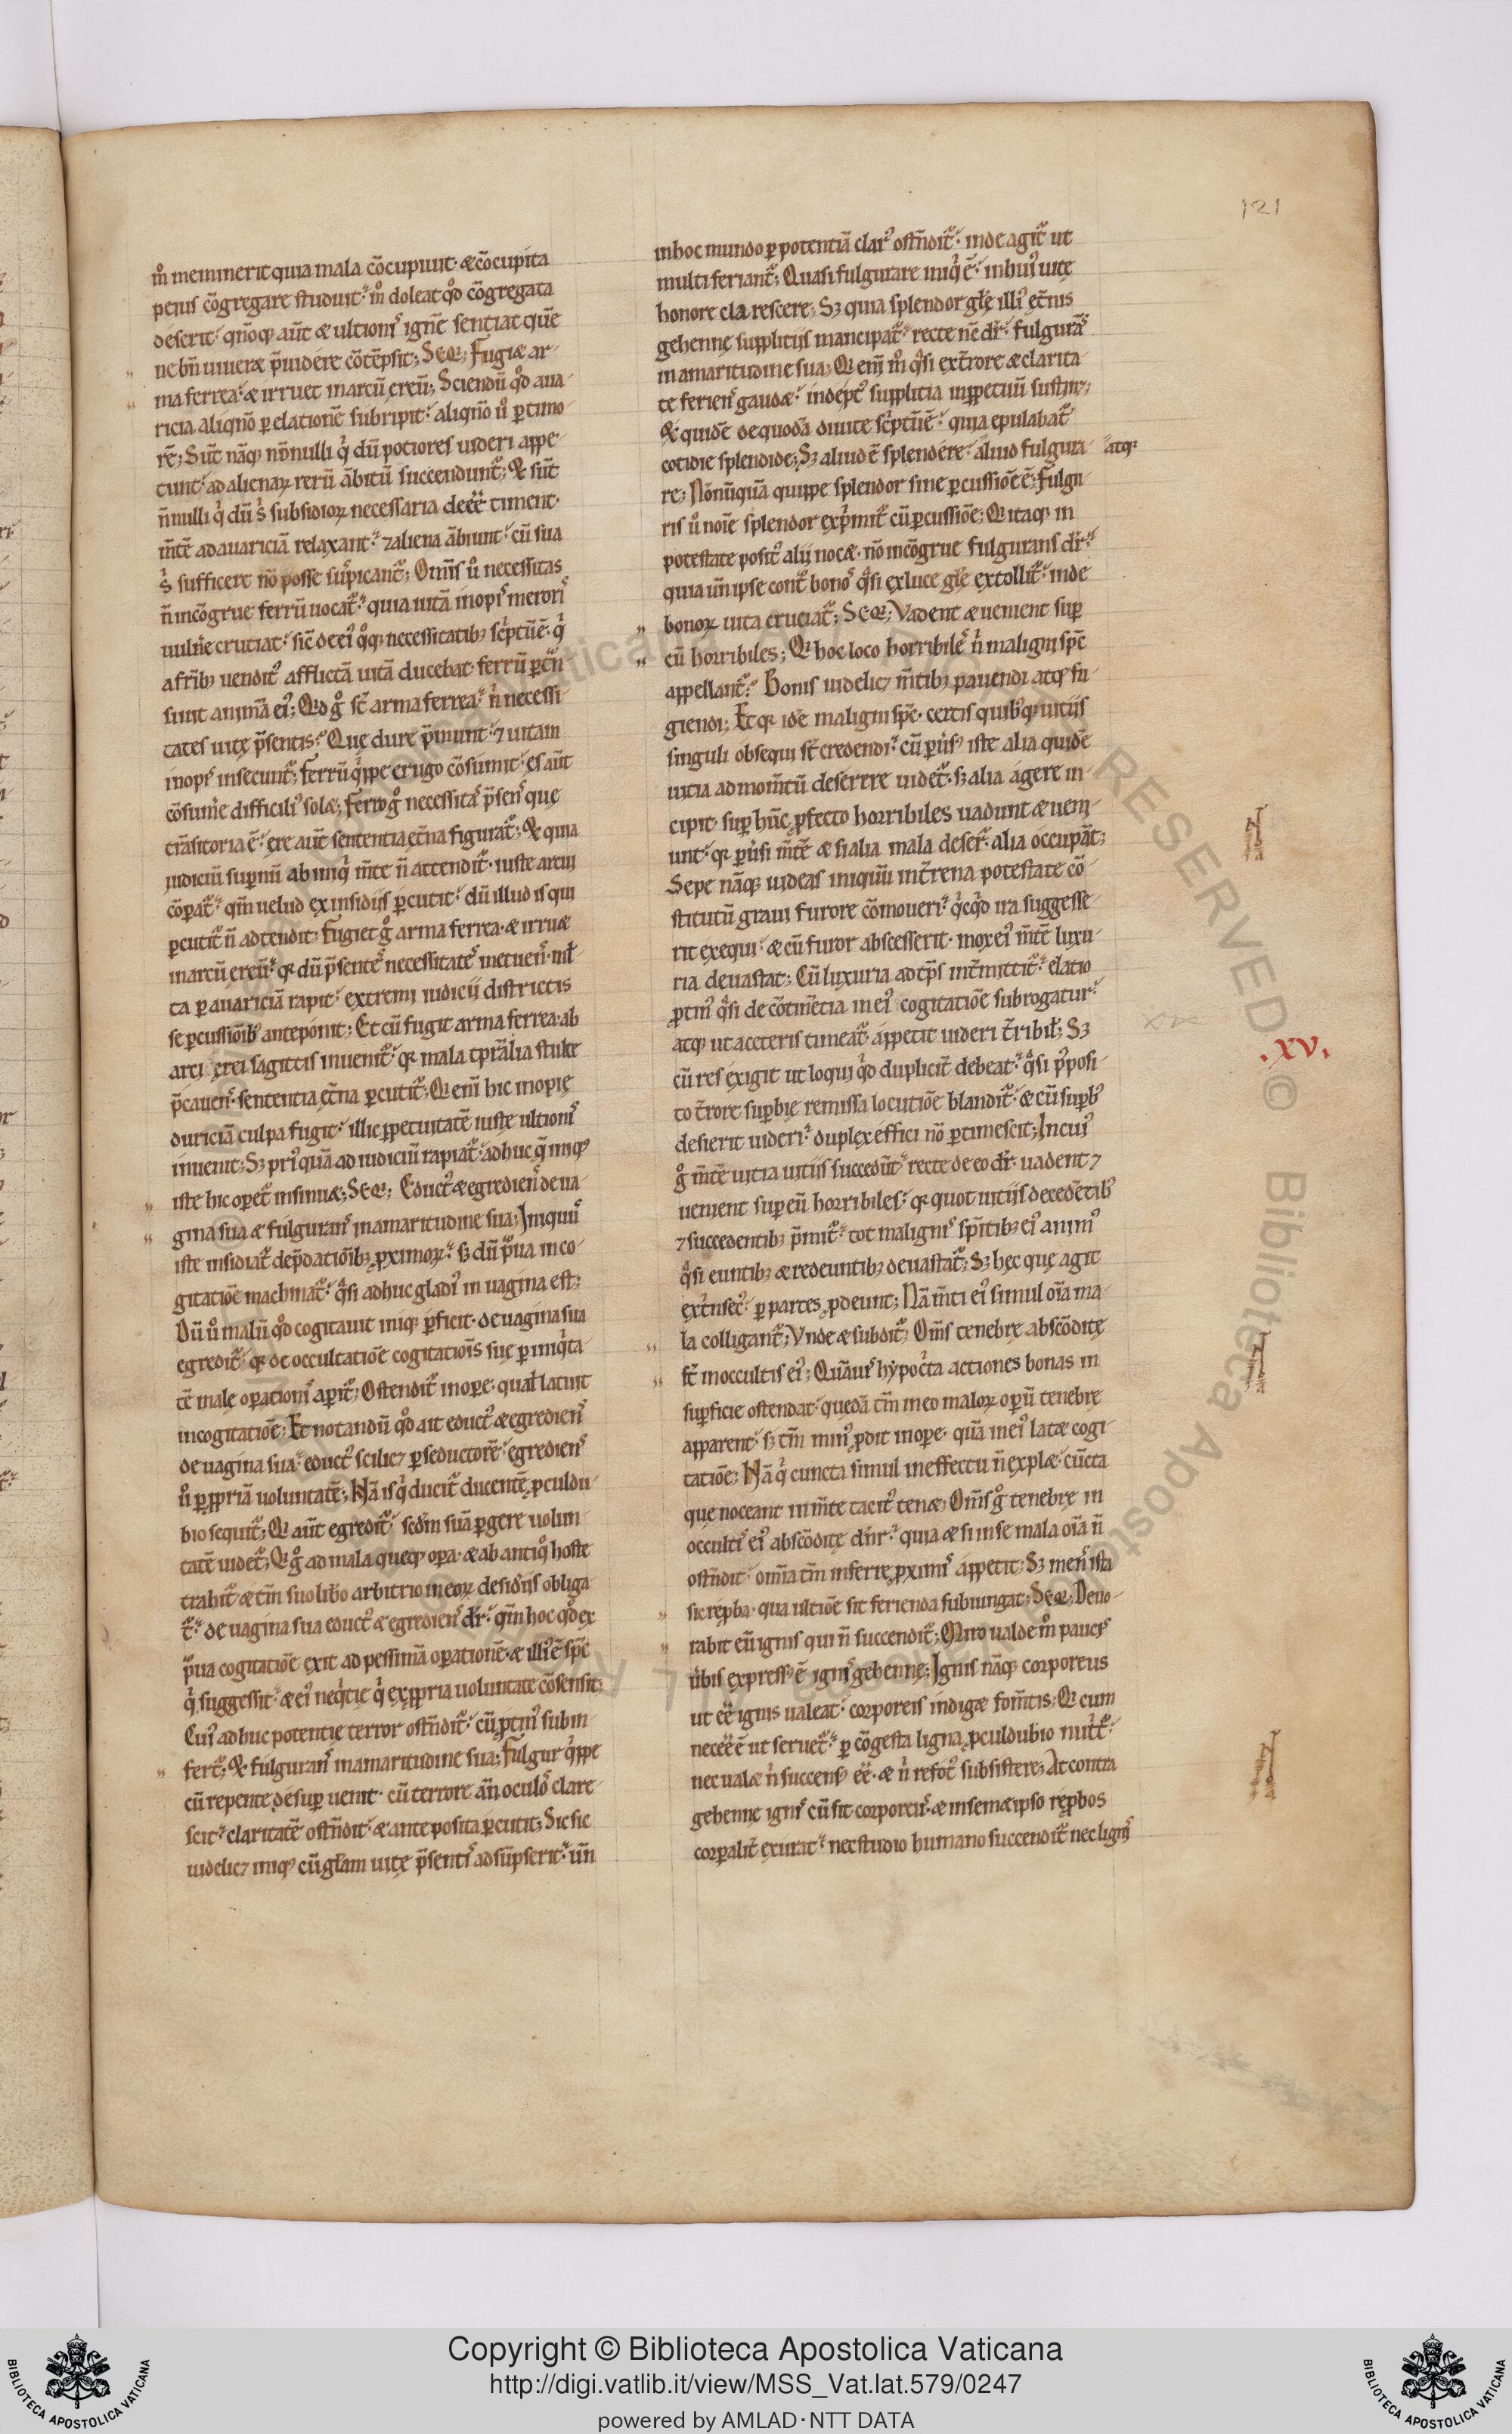 121
m̊ meminerit quia mala cõcupiuit· & cõcupita
peius cõgregare studuit· m̊ doleat qd̊ cõgregata
deserit· qñoq; aut̃ & ultionis ignẽ sentiat quẽ
ne bñ uiueræ p̃uidere cõtẽpsit; Seq; Fugiæ ar-
ma ferrea· & irruet in arcũ ereũ; Sciendũ qd̊ aua-
ricia aliqño p elationẽ subripit· aliqño ů p timo-
rẽ; Sũt nãq; nõnulli qi dũ potiores uideri appe-
tunt· ad alienaꝝ rerũ ãbitũ succendunt̃; & sũt
ñnulli qi dũ si subsidioꝝ necessaria deẽẽ timent·
m̃tẽ ad auariciã relaxant· ⁊ aliena ãbiunt· cũ sua
si sufficere nõ posse suspicant̃; Om̃is ů necessitas
ñ incõgrue ferrũ uocat̃· quia uitã inopis meroris
uulñe cruciat· sic̃ de ei' qq; necessitatib; sc̃ptũ ẽ· qi
a fr̃ib; uendit' afflictã uitã ducebat· ferrũ p̃trñ-
siuit animã ei'; Qd g̊ st̃ arma ferrea· ñ necessi-
tates uitę p̃sentis· Quę dure p̃munt· ⁊ uitam
inopis insecunt̃; Ferrũ qippe erugo cõsumit· es aut̃
cõsumẽ difficili' solæ; Ferro g̊ necessitas p̃sens que
trãsitoria ẽ· ere aut̃ sententia et̃na figurat̃; & quia
iudiciũ supnũ ab iniqi m̃te ñ attendit̃· iuste arcui
cõpat̃· qm̃ uelud ex insidiis pcutit· dũ illud is qui
pcutit̃ ñ adtendit; Fugiet g̊ arma ferrea· & irruæ
in arcũ ereũ· qꝛ dũ p̃sentes necessitates metuens· mł-
ta p auariciã rapit· extremi iudicii districtis
se pcussiõib; anteponit; Et cũ fugit arma ferrea· ab
arci erei sagittis inuenit̃· qꝛ mala tpr̃alia stulte
p̃cauens· sententia et̃na pcutit̃; Qi eni hic inopię
duriciã culpa fugit· illic ppetuitatẽ iustę ultionis
inuenit; Sꝫ pri' quã ad iudiciũ rapiat̃· adhuc q̃ iniq;
iste hic opet̃ insinuæ; Seq; Educt' & egrediens de ua-
gina sua & fulgurans in amaritudine sua; Iniquus
iste insidiat̃ dep̃dationib; pximoꝝ· sꝫ dũ p̃ua in co-
gitatiõe machinat̃· q̃si adhuc gladi' in uagina est;
Dũ ů malũ qd̊ cogitauit iniq; pficit· de uagina sua
egredit̃· qꝛ de occultatiõe cogitatiois suę p iniqita-
tẽ male opationis apit̃; Ostendit̃ in ope· qual̃ latuit
in cogitatiõe; Et notandũ qd̊ ait educt' & egrediens
de uagina sua· educt' scilicꝫ p seductorẽ· egrediens
ů p ppriã uoluntatẽ; Nã is qi ducit̃ ducentẽ pculdu-
bio sequit̃; Qi aut̃ egredit̃· sedm suã pgere uolun-
tatẽ uidet̃; Qi g̊ ad mala queq; opa· & ab antiqo hoste
trahit̃· & tm̃ suo libo arbitrio in eoꝝ desidiis obliga-
t̃· de uagina sua educt' & egrediens dr̃· qm̃ hoc qd̊ ex
p̃ua cogitatiõe exit ad pessimã operationẽ· & illi' ẽ spc̃
qi suggessit· & ei' neqitię qi ex ppria uoluntate cõsensit;
Cui' adhuc potentię terror ost̃ndit̃· cũ ptin' subin-
fert̃; & fulgurans in amaritudine sua; Fulgur qippe
cũ repente desup uenit· cũ terrore añ oculos clare-
scit· claritatẽ ost̃ndit· & anteposita pcutit; Sic sic
uidelicꝫ iniq; cũ gl̃am uitę p̃sentis adsũpserit· uñ
in hoc mundo p potentiã clar' ost̃ndit̃· inde agit̃ ut
multi feriant̃; Quasi fulgurare iniqi ẽ· in hui' uitę
honore clarescere; Sꝫ quia splendor gl̃ę illi' et̃nis
gehennę suppliciis mancipat̃· recte nẽ dr̃· fulgurãs
in amaritudine sua; Qi eni m̊ q̃si ex t̃rore & clarita-
te feriens gaudæ· indept' supplitia in ppetuũ sustinꝫ;
& quidẽ de quodã diuite sc̃ptũ ẽ· quia epulabat̃
cotidie splendide; Sꝫ aliud ẽ splendere· aliud fulgura- atq;
re; Nõnũquã quippe splendor sine pcussiõe ẽ; Fulgu-
ris ů noĩe splendor exp̃mit̃ cũ pcussiõe; Qi itaq; in
potestate posit' alii nocæ· nõ incõgrue fulgurans dr̃·
quia uñ ipse cont̃ bonos q̃si ex luce gl̃ę extollit̃· inde
bonoꝝ uita cruciat̃; Seq; Vadent & uenient sup
eũ horribiles; Qi hoc loco horribiles ñ maligni spc̃
appellant̃· Bonis uidelicꝫ m̃tib; pauendi atq; fu-
giendi; Et qꝛ idẽ maligni spc̃· certis quibq; uitiis
singuli obsequi st̃ credendi· cũ puis' iste alia quidẽ
uitia ad momt̃ũ deserere uidet̃· sꝫ alia agere in-
cipit· sup hũc pfecto horribiles uadunt & ueni-
unt· qꝛ puisi m̃tẽ & si alia mala deser̃t· alia occupãt;
Sepe nãq; uideas iniquũ in t̃rena potestate cõ-
stitutũ graui furore cõmoueri· qicqd ira suggesse-
rit exequi· & cũ furor abscesserit· mox ei' m̃tẽ luxu-
ria deuastat; Cũ luxuria ad tp̃s int̃mittit̃· elatio
ptin' q̃si de cõtin̄etia in ei' cogitatiõe subrogatur·
atq; ut a ceteris timeat̃· appetit uideri t̃ribil; Sꝫ
cũ res exigit ut loqui qd duplicit̃ debeat· q̃si pposi-
to t̃rore supbię remissa locutiõe blandit̃· & cũ supb'
desierit uideri· duplex effici nõ ptimescit; In cui'
g̊ m̃tẽ uitia uitiis succedũt· recte de eo dr̃· uadent ⁊
uenient sup eũ horribiles· qꝛ quot uitiis decedẽtib;
⁊ succedentib; p̃mit̃· tot malignis sp̃itib; ei' anim'
q̃si euntib; & redeuntib; deuastat̃; Sꝫ hęc quę agit
ext̃nsec'· p partes pdeunt; Nã m̃ti ei' simul oĩa ma-
la colligant̃; Vnde & subdit̃; Om̃s tenebre abscõditę
st̃ in occultis ei'; Quãuis hypoc̃ta actiones bonas in
supficie ostendat· quędã tm̃ in eo maloꝝ opũ tenebrę
apparent· sꝫ tm̃ min' pdit in ope· quã in ei' latæ cogi-
tatiõe; Nã qi cuncta simul in effectu ñ explæ· cũcta
que noceant in m̃te tacit' tenæ; Om̃s g̊ tenebrę in
occultis ei' abscõditę dñr· quia & si in se mala oĩa ñ
ost̃ndit· omĩa tm̃ inferre pximis appetit; Sꝫ mens ista
sic repba· qua ultiõe sit ferienda subiungat; Seq; Deuo-
rabit eũ ignis qui ñ succendit̃; Miro ualde m̊ paucis
ůbis express' ẽ ignis gehennę; Ignis nãq; corporeus
ut ẽẽ ignis ualeat· corporeis indigæ fom̃tis; Qi cum
necẽẽ ẽ ut seruet̃· p cõgesta ligna pculdubio nuit̃t̃·
nec ualæ ñ succens' ẽẽ· & ñ refot' subsistere; At contra
gehennę ignis cũ sit corporeus· & in semæipso repbos
corpalit̃ exurat· nec studio humano succendit̃ nec lignis
.XV.
Copyright © Biblioteca Apostolica Vaticana
http://digi.vatlib.it/view/MSS_Vat.lat.579/0247
powered by AMLAD·NTT DATA
BIBLIOTECA APOSTOLICA VATICANA
BIBLIOTECA APOSTOLICA VATICANA